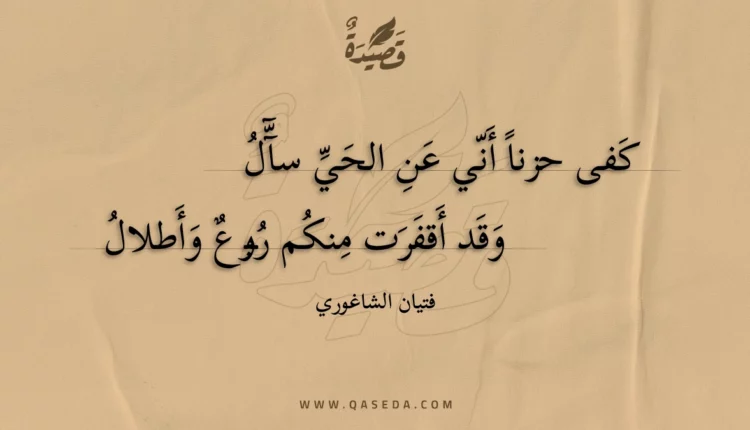 قَصِيدَةٌ
كَفى حزناً أَنّي عَنِ الحَيِّ سآّلُ
وَقَد أَقفَرَت مِنكُم رُبوعٌ وَأَطلالُ
فتيان الشاغوري
WWW.QASEDA.COM